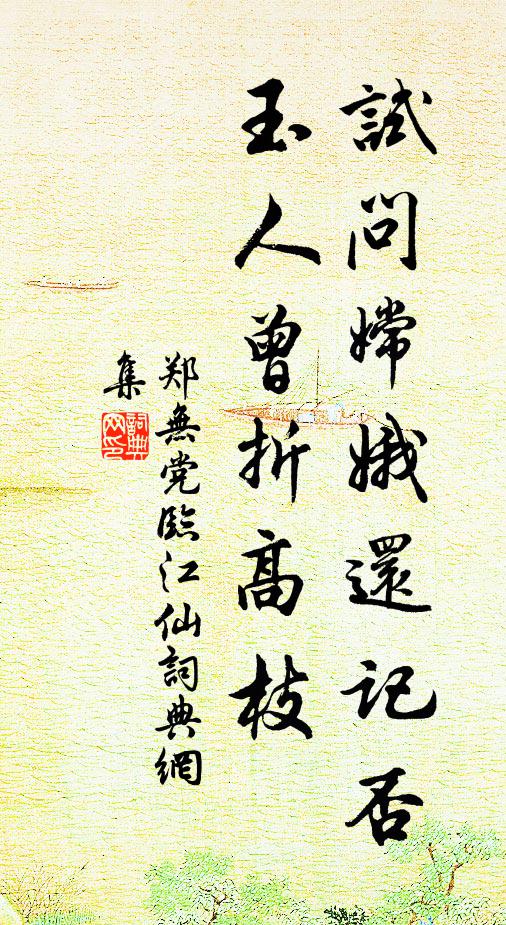 試問嫦娥還記否
玉人曾折高枝
郑無党臨江仙詞典網
集
詞典
网印